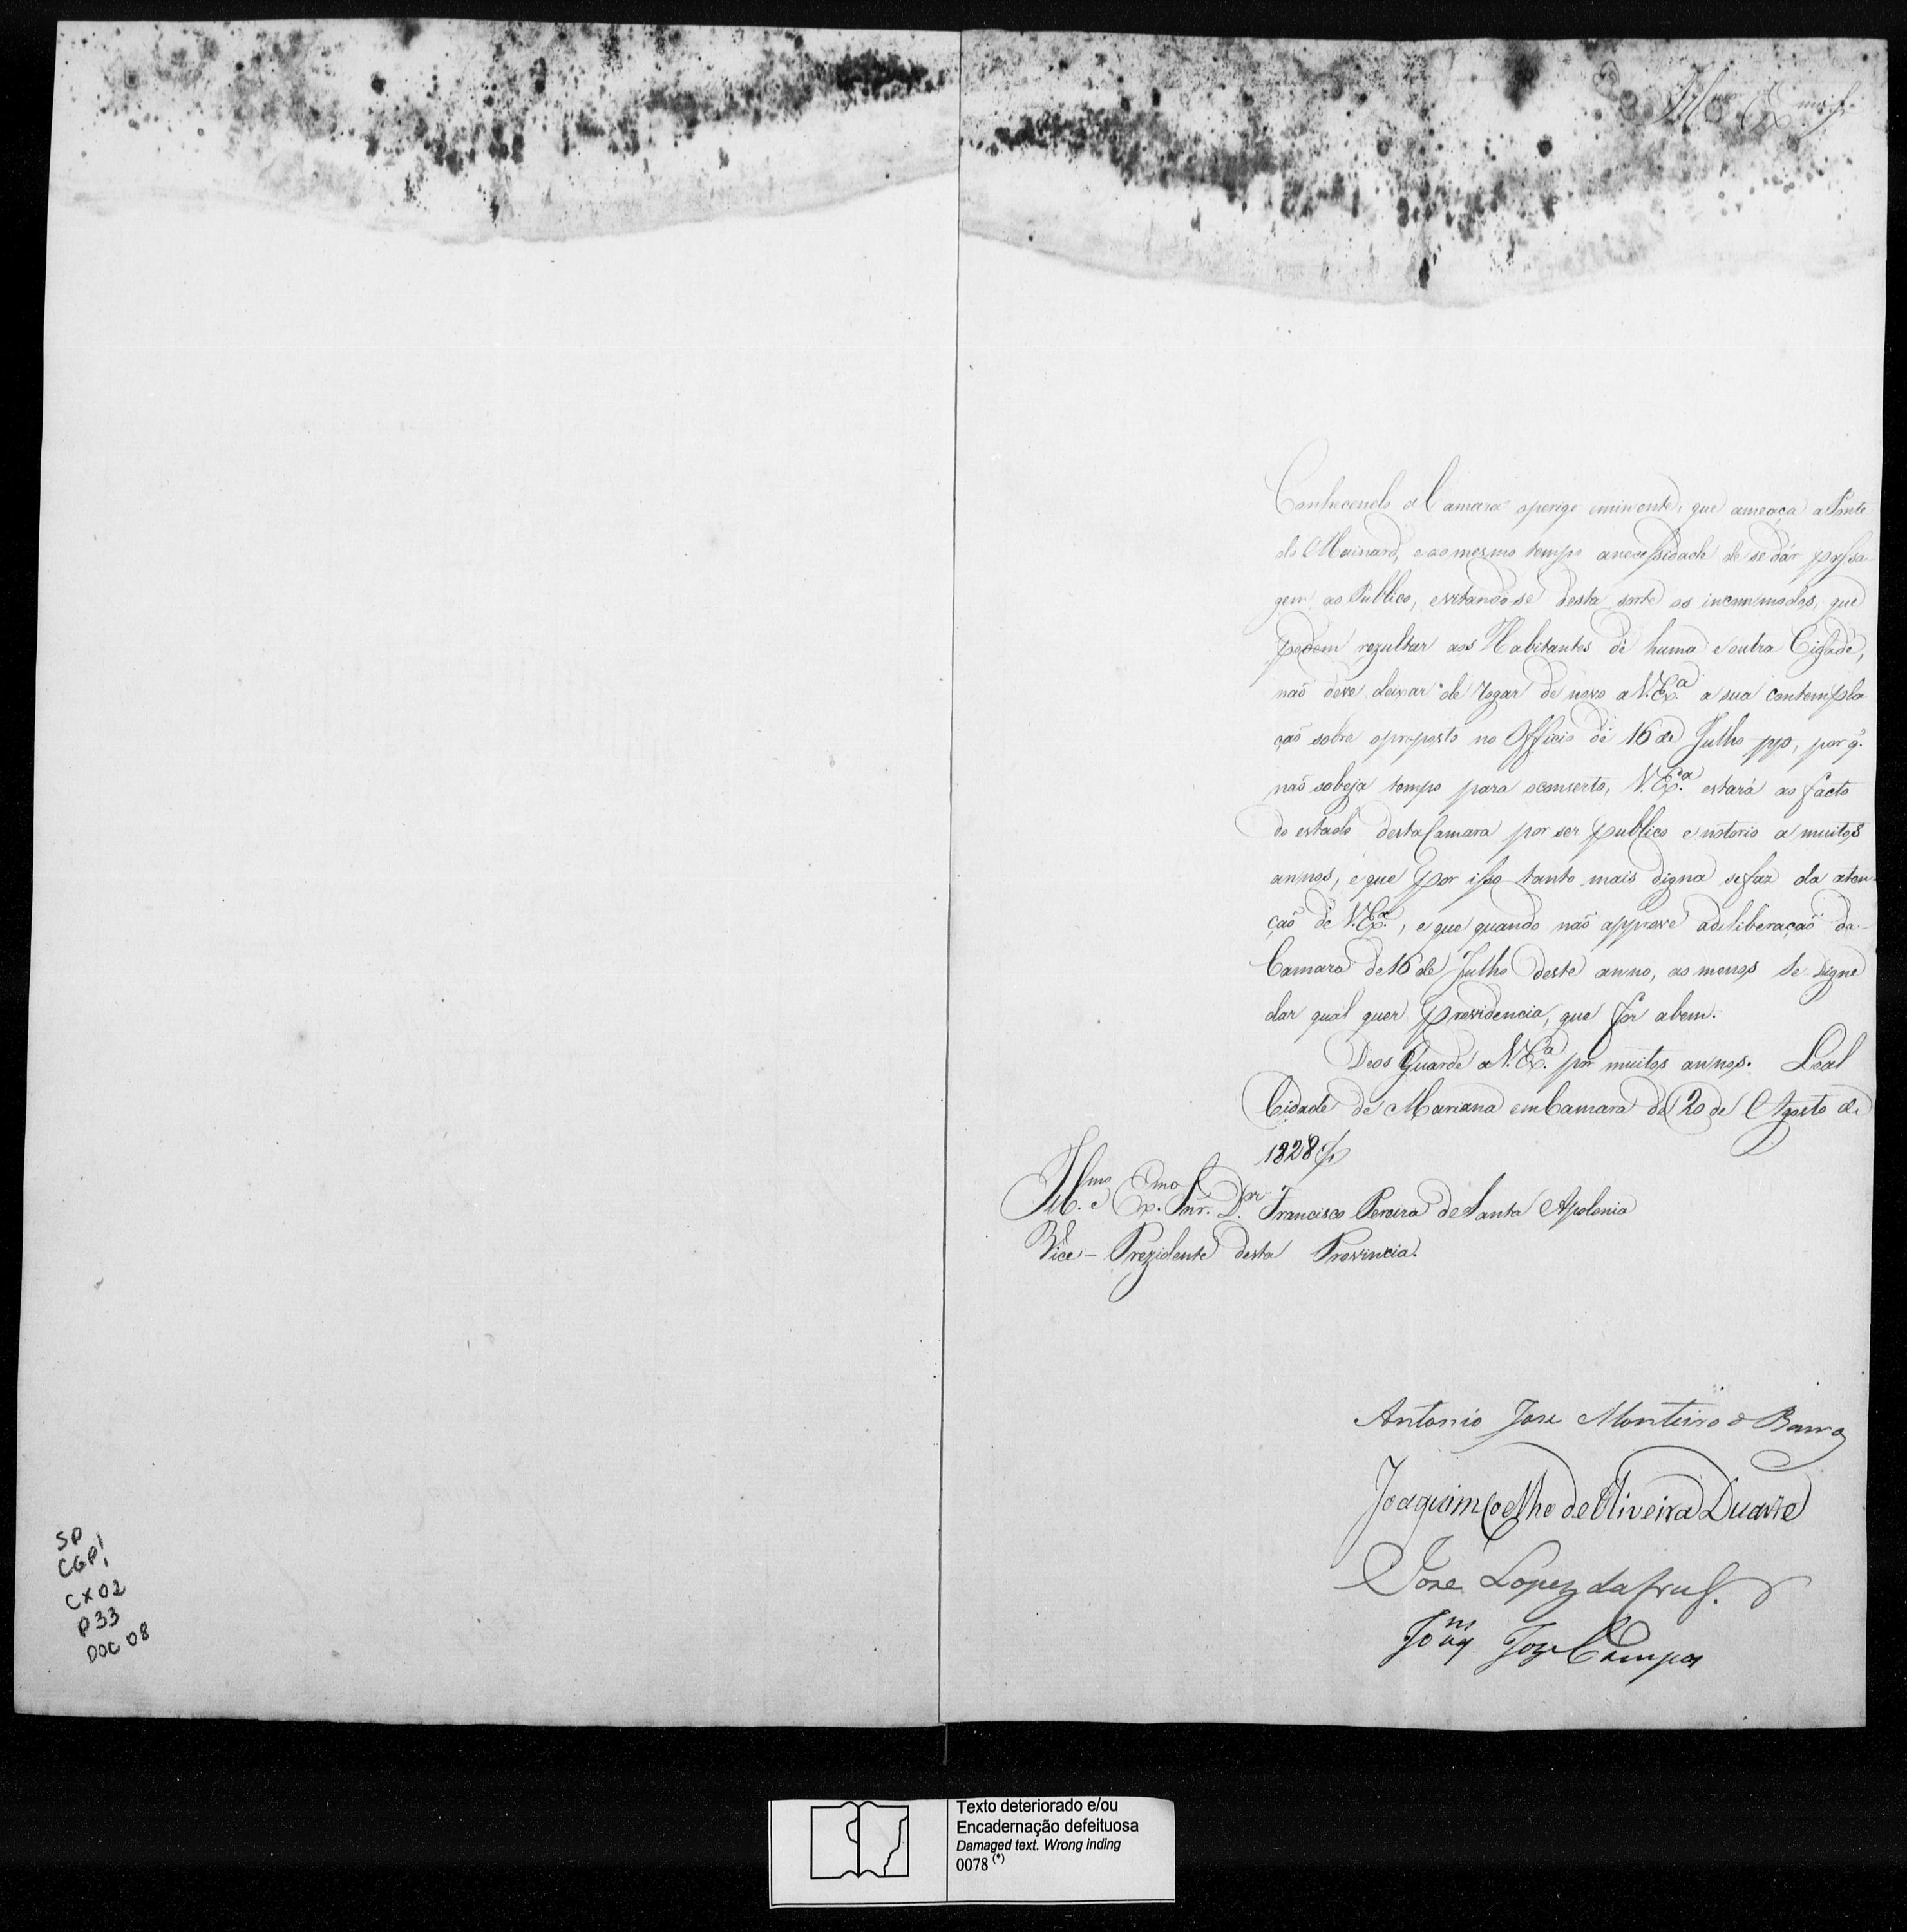 Ill.mo Ex.mo Sr.
Conhecendo a Camara operigo eminente, que ameaça a Ponte
do Mainard, e ao mesmo tempo a necessidade de se dár passa-
gem ao Publico, evitando-se desta sorte os incommodos, que
podem rezultar aos Habitantes de huma e outra Cidade,
naõ deve deixar de rogar de novo a V. Ex.ª a sua contempla
çaõ sobre oproposto no Officio de 16 de Julho pp, por q.
naõ sobeja tempo para oconserto, V. Ex.ª estará ao facto
do estado desta Camara por ser publico e notorio a muitos
annos, e que por isso tanto mais digna se faz da aten-
çaõ de V. Ex.ª, e que quando naõ approve adeliberaçaõ da-
Camara de 16 de Julho deste anno, ao menos se digne
dar qual quer providencia, que for abem.
Deos Guarde a V. Ex.ª por muitos annos. Leal
Cidade de Mariana em Camara de 20 de Agosto de
1828
Ill.mo e Ex.mo Snr. D.or Francisco Pereira de Santa Apolonia
Vice-Prezidente desta Provincia.
Antonio Jose Monteiro de Barros
Joaquim Coelho de Oliveira Duarte
Joze Lopez da Cruz.
Joaq.m Joze Campos
SP
CGP1
CX02
P33
DOC 08
Texto deteriorado e/ou
Encadernação defeituosa
Damaged text. Wrong inding
0078 (*)